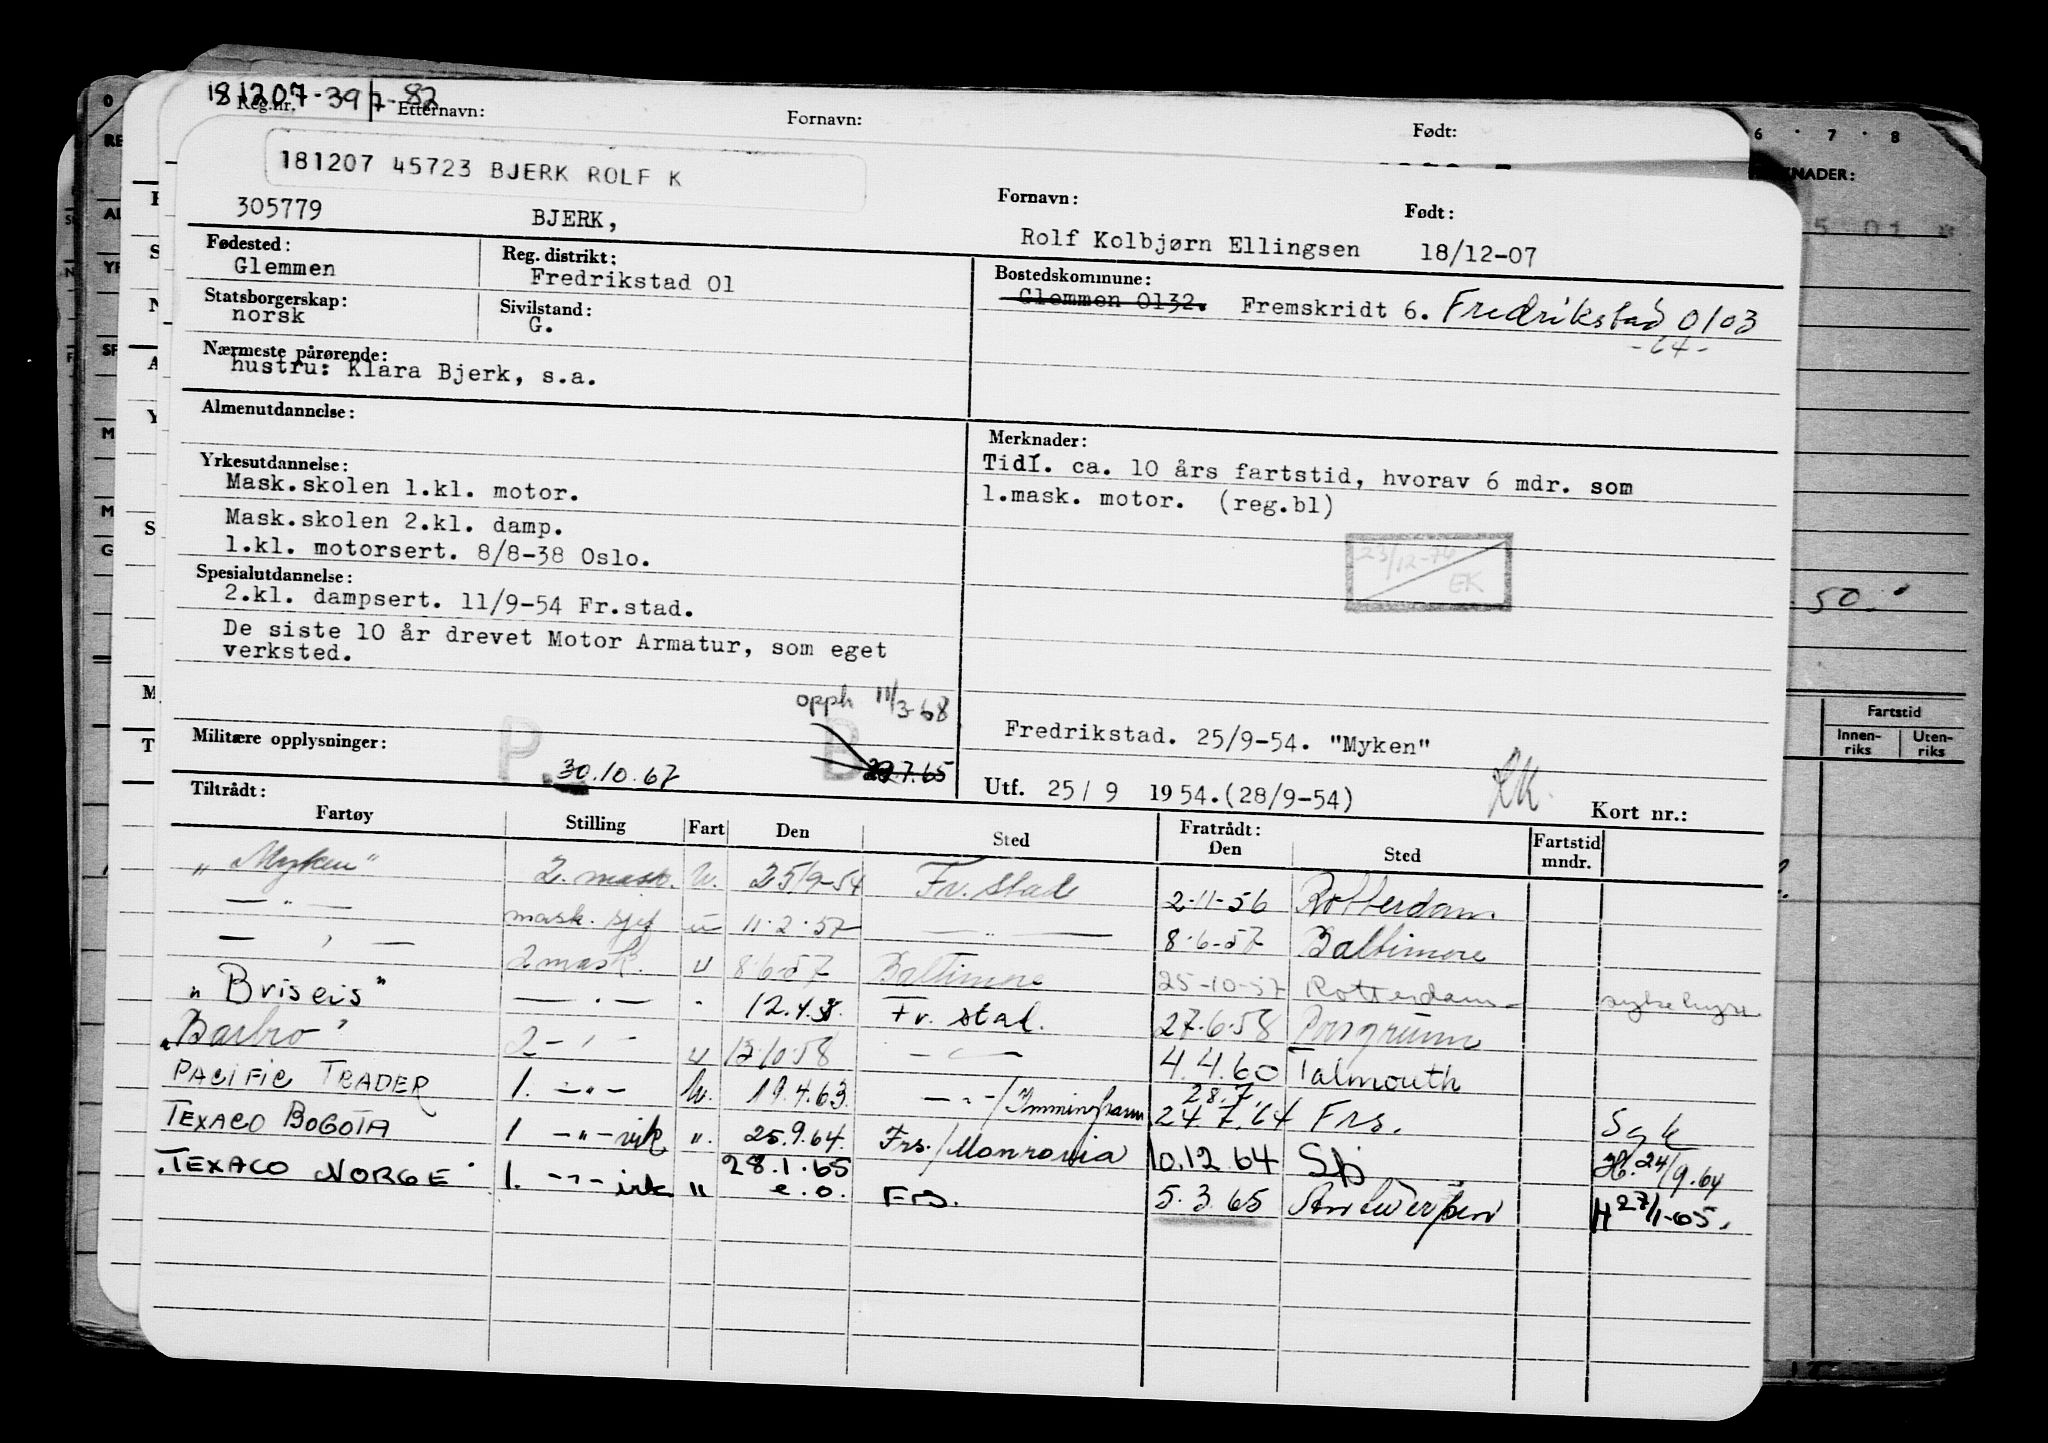 181207-39 7-82
Reg.nr. Etternavn: Fornavn: Født:
181207 45723 BJERK ROLF K
Fornavn: Født:
305779 BJERK, Rolf Kolbjørn Ellingsen 18/12-07
Fødested: Reg. distrikt: Bostedskommune:
Glemmen Fredrikstad 01 Glemmen 0132. Fremskridt 6. Fredrikstad 0103
-64-
Statsborgerskap: Sivilstand:
norsk G.
Nærmeste pårørende:
hustru: Klara Bjerk, s.a.
Almenutdannelse:
Merknader:
Tidl. ca. 10 års fartstid, hvorav 6 mdr. som
1.mask. motor. (reg.bl)
23/12-74
EK
Yrkesutdannelse:
Mask.skolen 1.kl. motor.
Mask.skolen 2.kl. damp.
1.kl. motorsert. 8/8-38 Oslo.
Spesialutdannelse:
2.kl. dampsert. 11/9-54 Fr.stad.
De siste 10 år drevet Motor Armatur, som eget
verksted.
opph 11/3-68
Militære opplysninger: P. 30.10.67 B 7.65
Fredrikstad. 25/9-54. "Myken"
Utf. 25/9 1954.(28/9-54) Kort nr.:
Tiltrådt: Fratrådt:
Fartøy Stilling Fart Den Sted Den Sted Fartstid mndr.
"Myken" 2. mask. U. 25/9-54 Fr.stad 2-11-56 Rotterdam
— " — mask. sjef u 11-2-57 — " — 8-6-57 Baltimore
— " — 2 mask. u 8-6-57 Baltimore 25-10-57 Rotterdam
"Briseis" — " — " 12.4.58. Fr. stad. 27.6.58 Porsgrunn
"Barbro" 2 — " — u 17.10.58 — " — 4.4.60 Falmouth
PACIFIC TRADER 1. — " — U. 19.4.63. — " — / Immingham 28.7. 24.7.64 Frs. Syk
TEXACO BOGOTA 1 — " — vik ". 25.9.64. Frs./Monrovia 10.12.64 Sbj 24/9.64
"TEXACO NORGE" 1. — " — vik " 28.1.65 e.o. Frs. 5.3.65 Antwerpen H 27/1-65.
6 · 7 · 8
KNADER:
50.-
Fartstid
Innen-riks Uten-riks